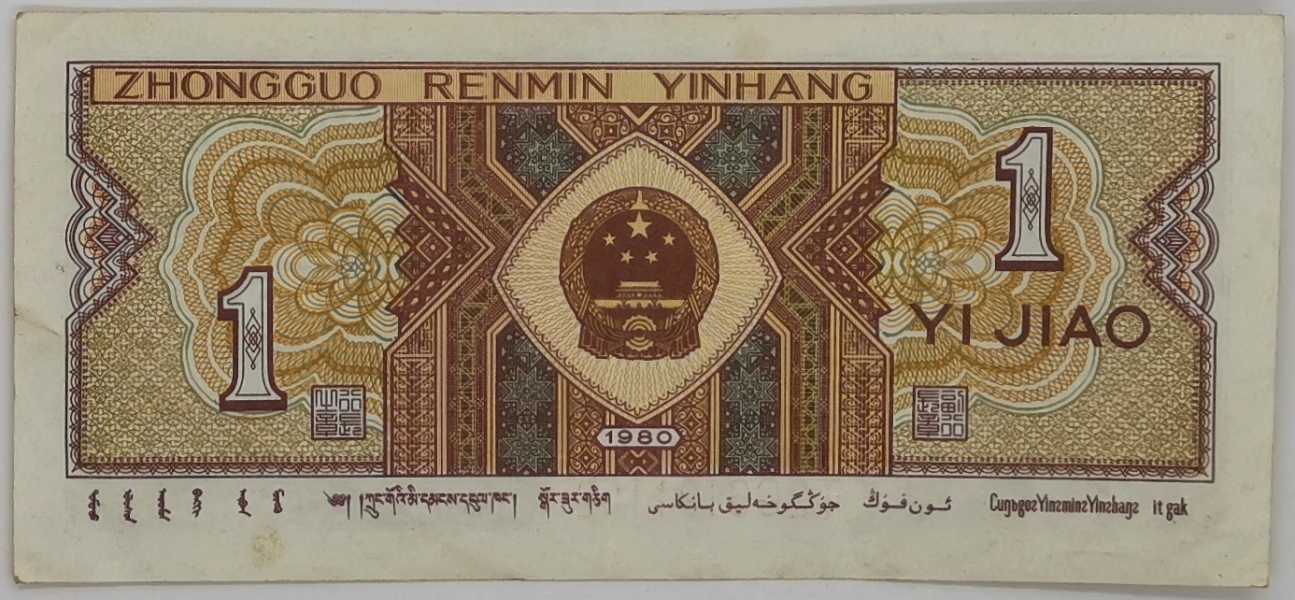 ZHONGGUO RENMIN YINHANG
1
1
YI JIAO
行長之章
副行長章
1980
༄༅། །ཀྲུང་གོའི་མི་དམངས་དངུལ་ཁང་། སྒོར་ཟུར་གཅིག
جۇڭگوخەلىق بانكاسى ئون فۇڭ
CuŋƅgoƨYinƨminƨYinƨhaŋƨ it gak